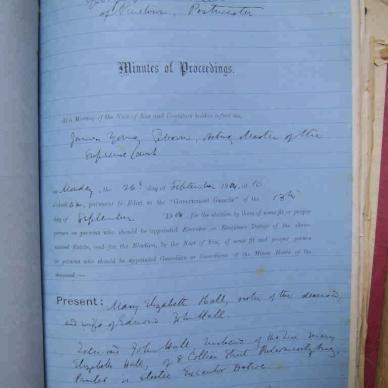 of Pinetown, Postmaster
Minutes of Proceedings.
At a Meeting of the Next of Kin and Creditors holden before me,
James Young Gibson, Acting Master of the
Supreme Court
on Monday, the 26th day of September 1904, at 10
o'clock a.m., pursuant to Edict in the "Government Gazette" of the 13th
day of September 1904, for the election by them of some fit or proper
person or persons who should be appointed Executor or Executors Dative of the above-
named Estate, and for the Election, by the Next of Kin, of some fit and proper person
or persons who should be appointed Guardian or Guardians of the Minor Heirs of the
deceased :—
Present: Mary Elizabeth Hall, mother of the deceased,
and wife of Edward John Hall.
Edward John Hall, husband of the said Mary
Elizabeth Hall, of 8 Collier Street Pietermaritzburg,
Printer is elected Executor Dative